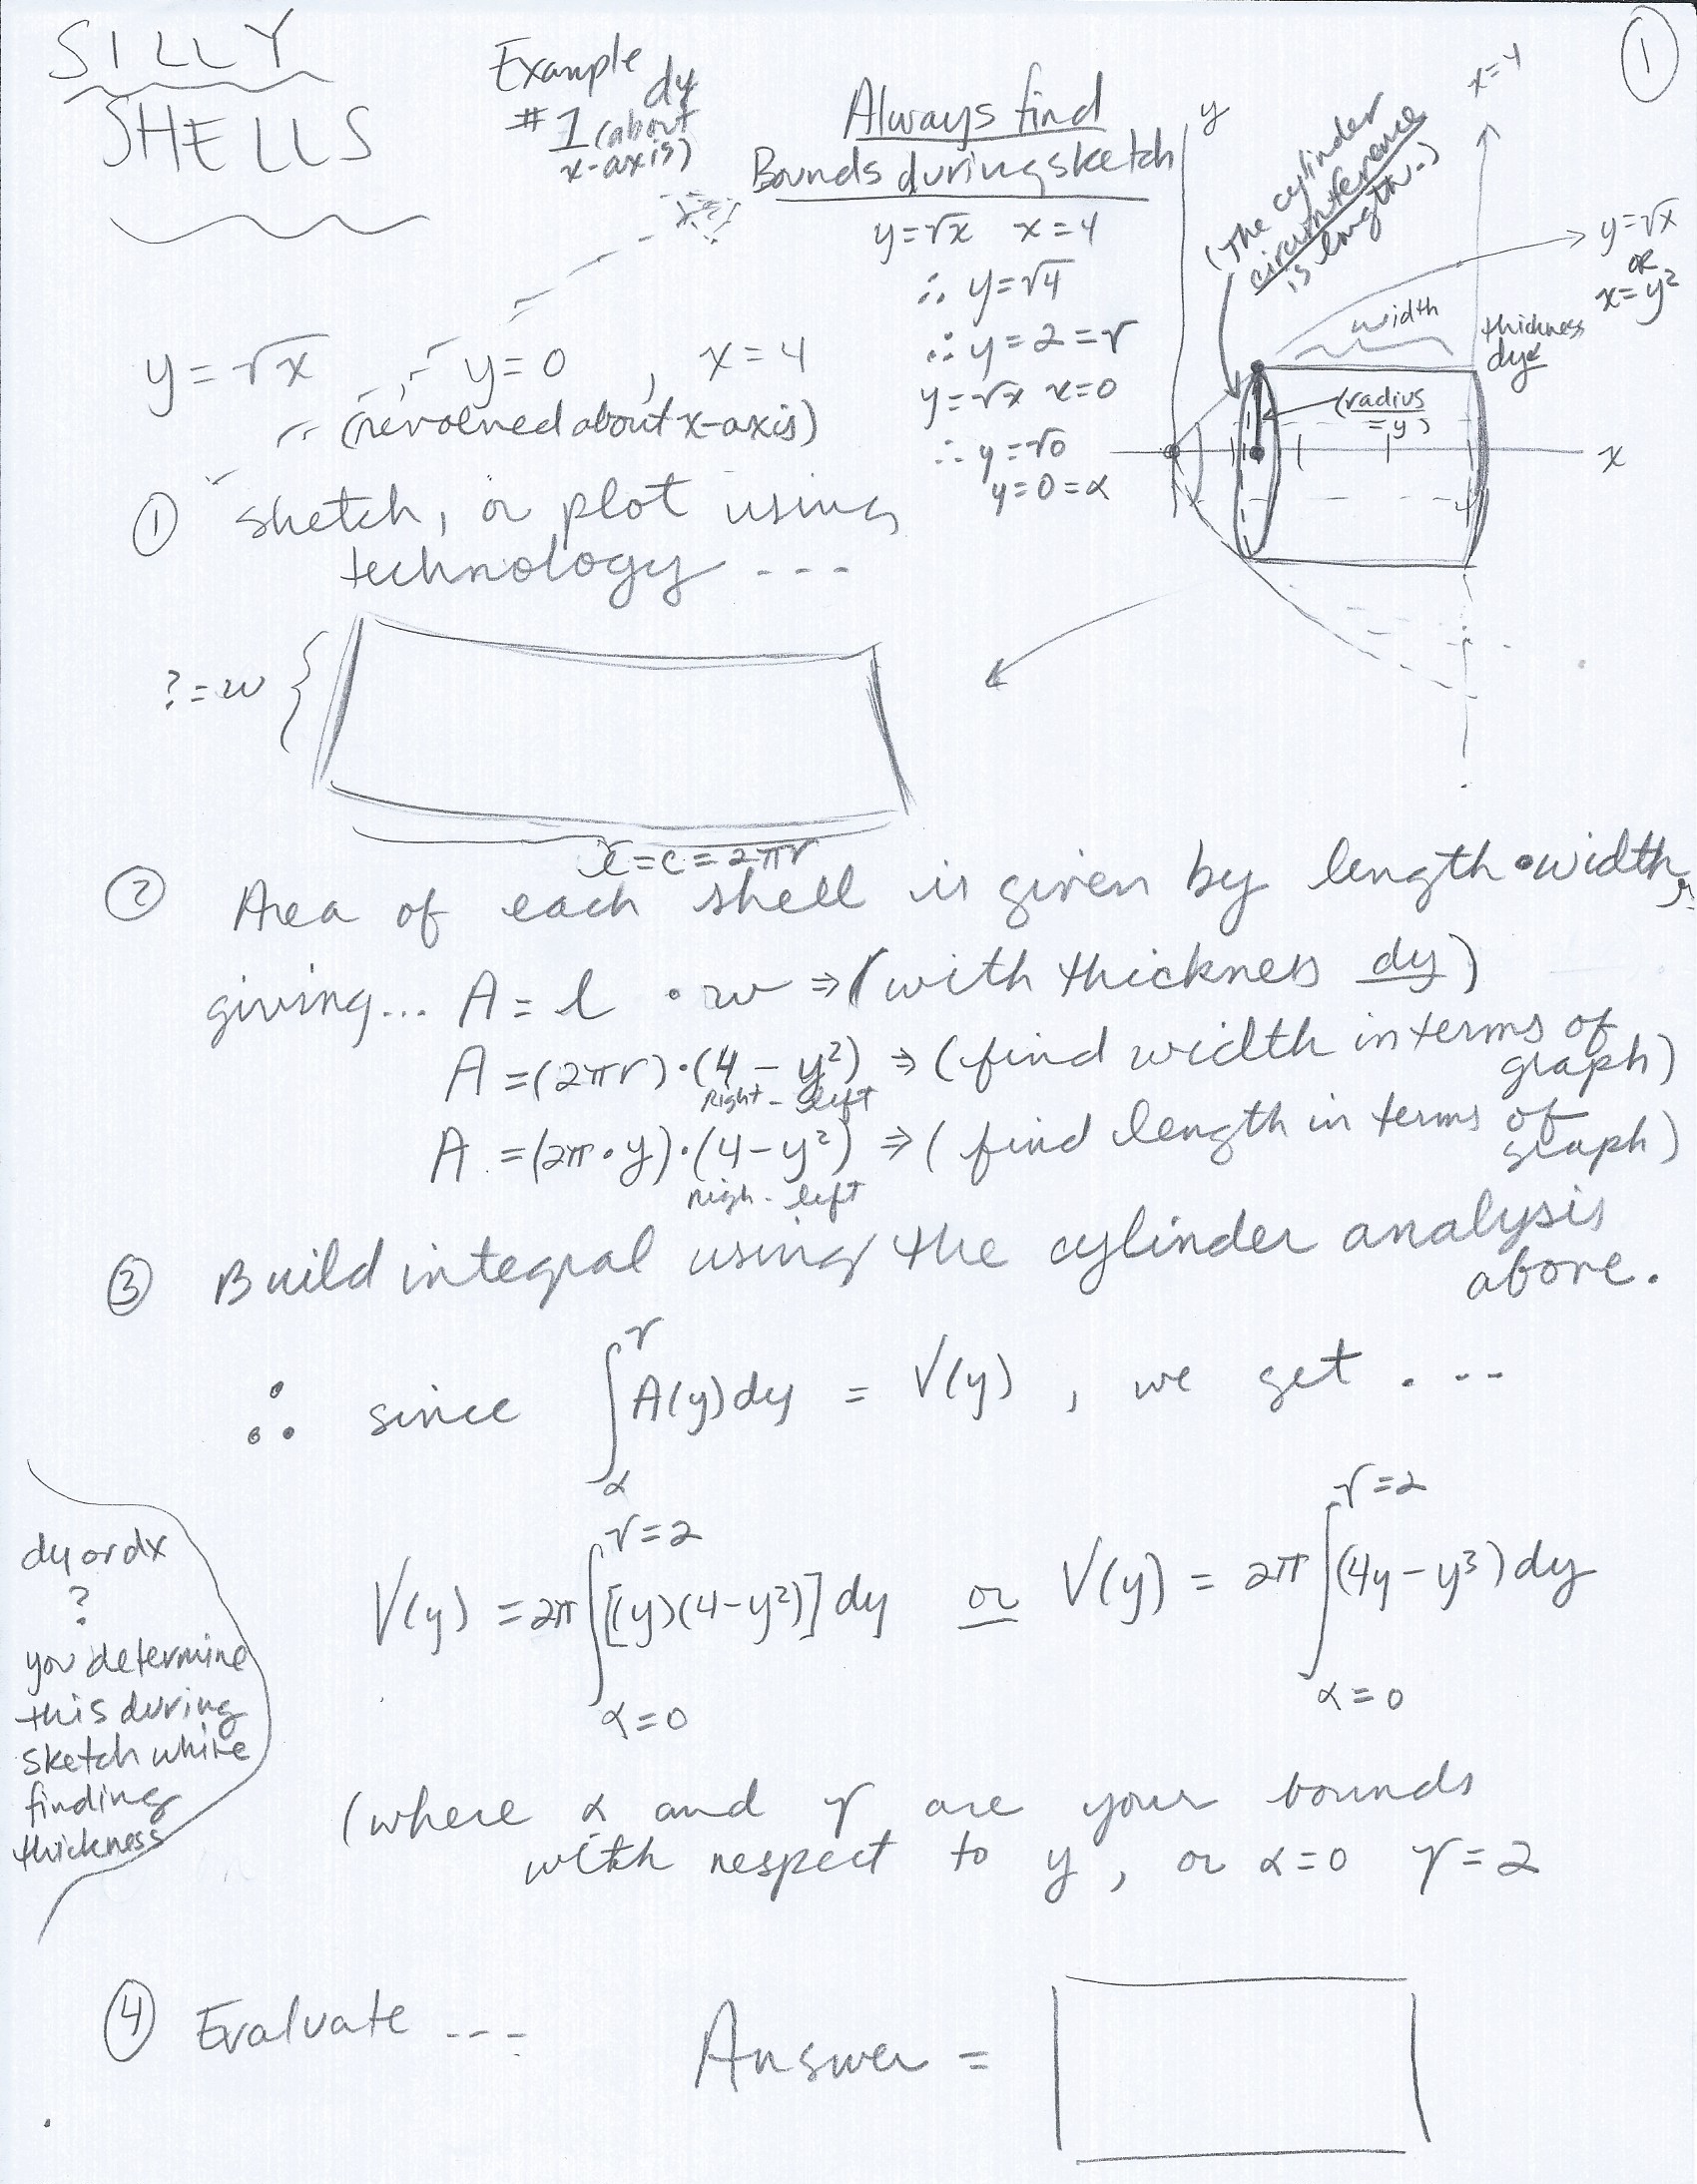 SILLY
SHELLS
Example dy
#1 (about
x-axis)
Always find
Bounds during sketch
y=√x x=4
∴ y=√4
∴ y=2=r
y=√x x=0
∴ y=√0
y=0=α
①
y
x=4
(The cylinder
circumference
is length.)
y=√x
OR
x=y²
width
thickness
dy
(radius
=y)
x
y=√x , y=0 , x=4
(revolved about x-axis)
① sketch, or plot using
technology ---
?=w
l=c=2πr
② Area of each shell is given by length•width,
giving... A = l • w ⇒ (with thickness dy)
A =(2πr)•(4 - y²) ⇒ (find width in terms of
graph)
right - left
A =(2π•y)•(4-y²) ⇒ (find length in terms of
graph)
righ - left
③ Build integral using the cylinder analysis
above.
∴ since ∫ A(y)dy = V(y) , we get . ---
r
α
dy or dx
?
you determine
this during
sketch while
finding
thickness
r=2
r=2
V(y) =2π∫[(y)(4-y²)]dy or V(y) = 2π∫(4y-y³)dy
α=0
α=0
(where α and r are your bounds
with respect to y, or α=0 r=2
④ Evaluate --- Answer =